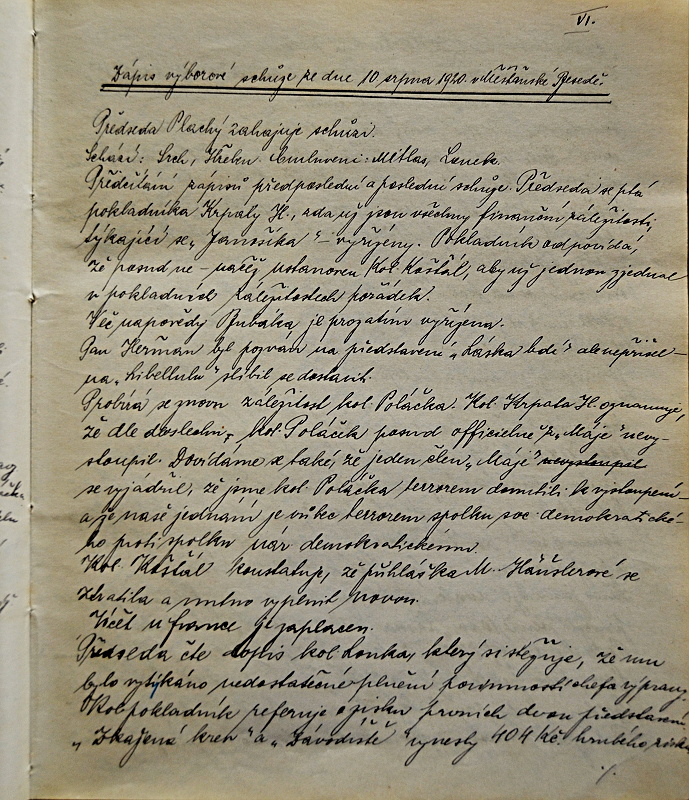 VI.
Zápis výborové schůze ze dne 10 srpna 1920 v Měšťanské Besedě.
Předseda Plachý zahajuje schůzi.
Schází: Srch, Omluveni: Mitlas, Lanek.
Předčítání zápisů předposlední a poslední schůze. Předseda se ptá
pokladníka Krpaty H., zda už jsou všechny finanční záležitosti,
týkající se „Janošíka" – vyřízeny. Pokladník odpovídá,
že posud ne – načež ustanoven kol. Košťál, aby už jednou zjednal
v pokladních záležitostech pořádek.
Věc nápovědy Bubáka je prozatím vyřízena.
Pan Heřman byl pozván na představení „Láska bdí" ale nepřišel –
na „Libellulu" slíbil se dostavit.
Probírá se znovu záležitost kol. Poláčka. Kol. Krpata H. oznamuje,
že dle kol. Poláček posud officielně z „Máje" nevy-
stoupil. Dovídáme se také, že jeden člen „Máje" nevystoupil
se vyjádřil, že jsme kol. Poláčka terrorem donutili k vystoupení –
a že naše jednání je vůbec terrorem spolku soc. demokratické-
ho proti spolku nár. demokratickému.
Kol. Košťál konstatuje, že přihláška M. Häuslerové se
ztratila a nutno vyplnit novou.
Účet u je zaplacen.
Předseda čte dopis kol. Lonka, který si stěžuje, že mu
bylo vytýkáno nedostatečné plnění povinností chefa výpravy.
Kol. pokladník referuje o zisku prvních dvou představení
„Zkažená krev" a „Závodiště" vynesly 404 Kč hrubého zisku
./.